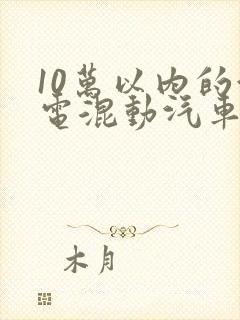 10萬以內的
電混動汽車
木月